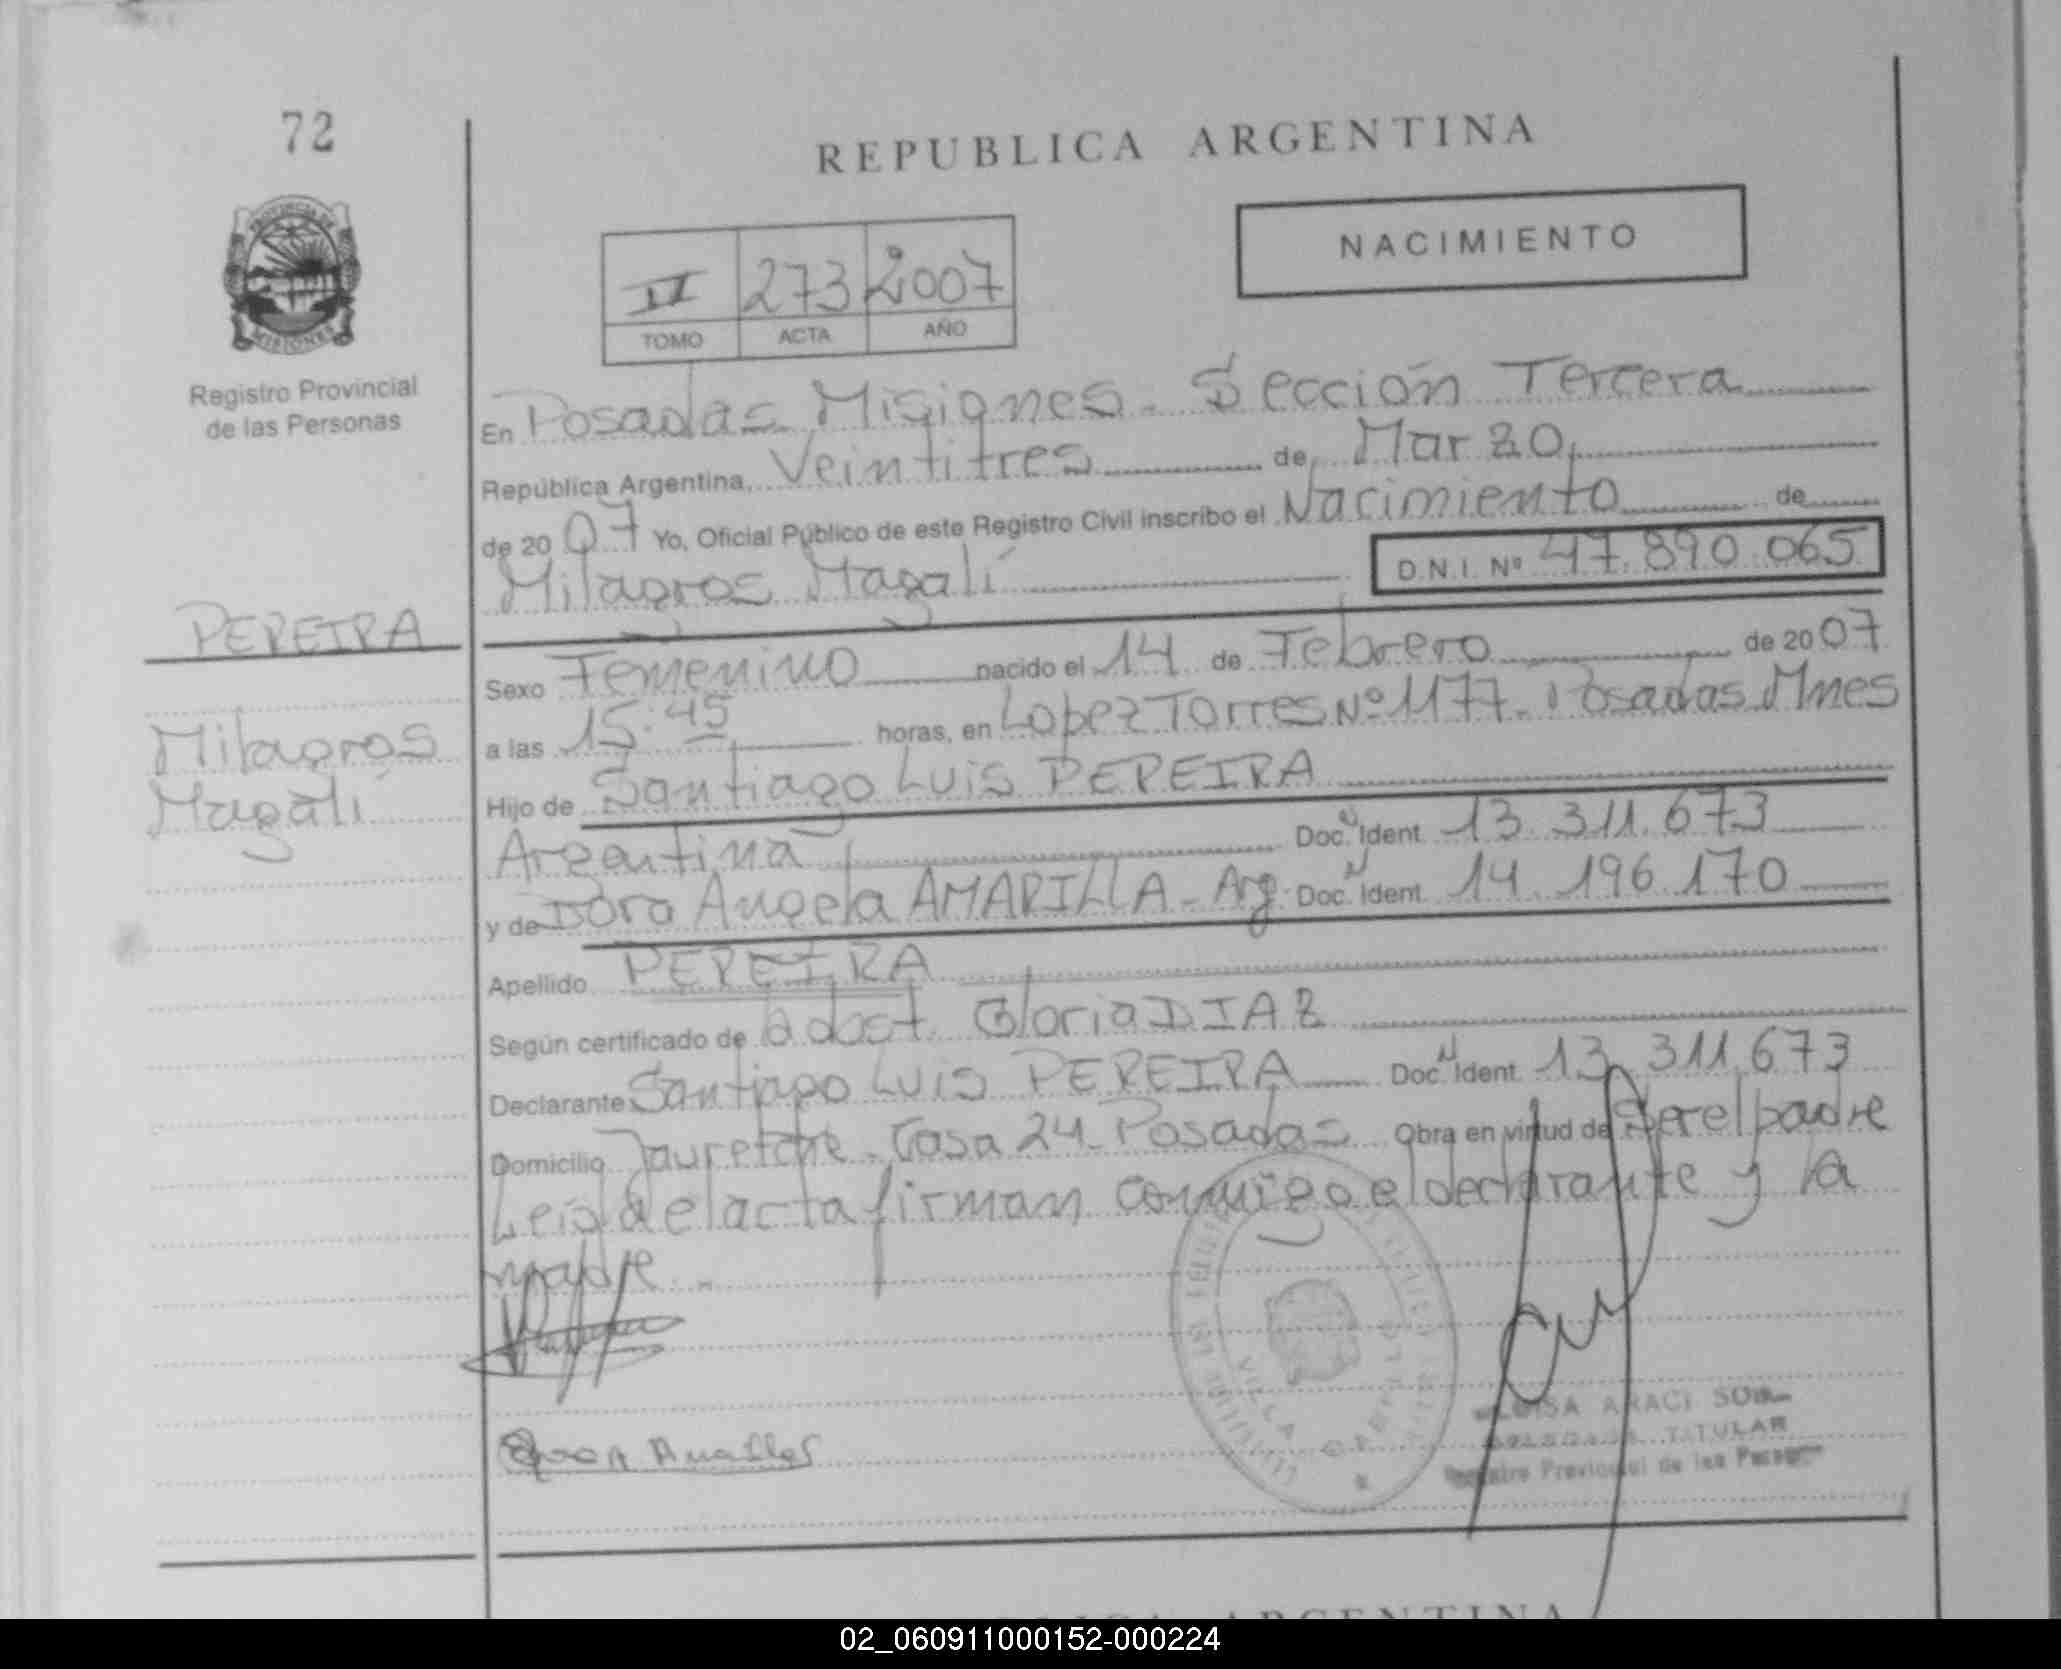 72
REPUBLICA ARGENTINA
PROVINCIA DE
MISIONES
NACIMIENTO
II 273 2007
TOMO ACTA AÑO
Registro Provincial
de las Personas
En Posadas Misiones. Sección Tercera
República Argentina, Veintitres de Marzo,
de 2007 Yo, Oficial Público de este Registro Civil inscribo el Nacimiento de
Milagros Magalí D.N.I. Nº 47.890.065
PEREIRA
Milagros
Magalí
Sexo Femenino nacido el 14 de Febrero de 2007
a las 15:45 horas, en Lopez Torres Nº 1177. Posadas Mnes
Hijo de Santiago Luis PEREIRA
Argentina Doc. Ident. 13.311.673
y de Dora Angela AMARILLA - Arg. Doc. Ident. 14.196.170
Apellido PEREIRA
Según certificado de a obst. Gloria DIAZ
Declarante Santiago Luis PEREIRA Doc. Ident. 13.311.673
Domicilio Jauretche. Casa 24. Posadas Obra en virtud de Ser el padre
Leída el acta firman conmigo el declarante y la
madre.
VILLA CABELLO
ARACI
TITULAR
Registro Provincial de las
REPUBLICA ARGENTINA
02_060911000152-000224